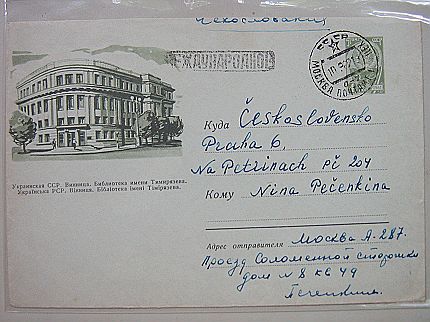 Чехословакия
МЕЖДУНАРОДНОЕ
МОСКВА
Куда Československo
Praha 6,
Na Petřinach pč 204
Украинская ССР. Винница. Библиотека имени Тимирязева.
Українська РСР. Вінниця. Бібліотека імені Тімірязєва.
Кому Nina Pečenkina
Адрес отправителя Москва А-287.
Проезд Соломенной Сторожки
дом N 8 кв 49